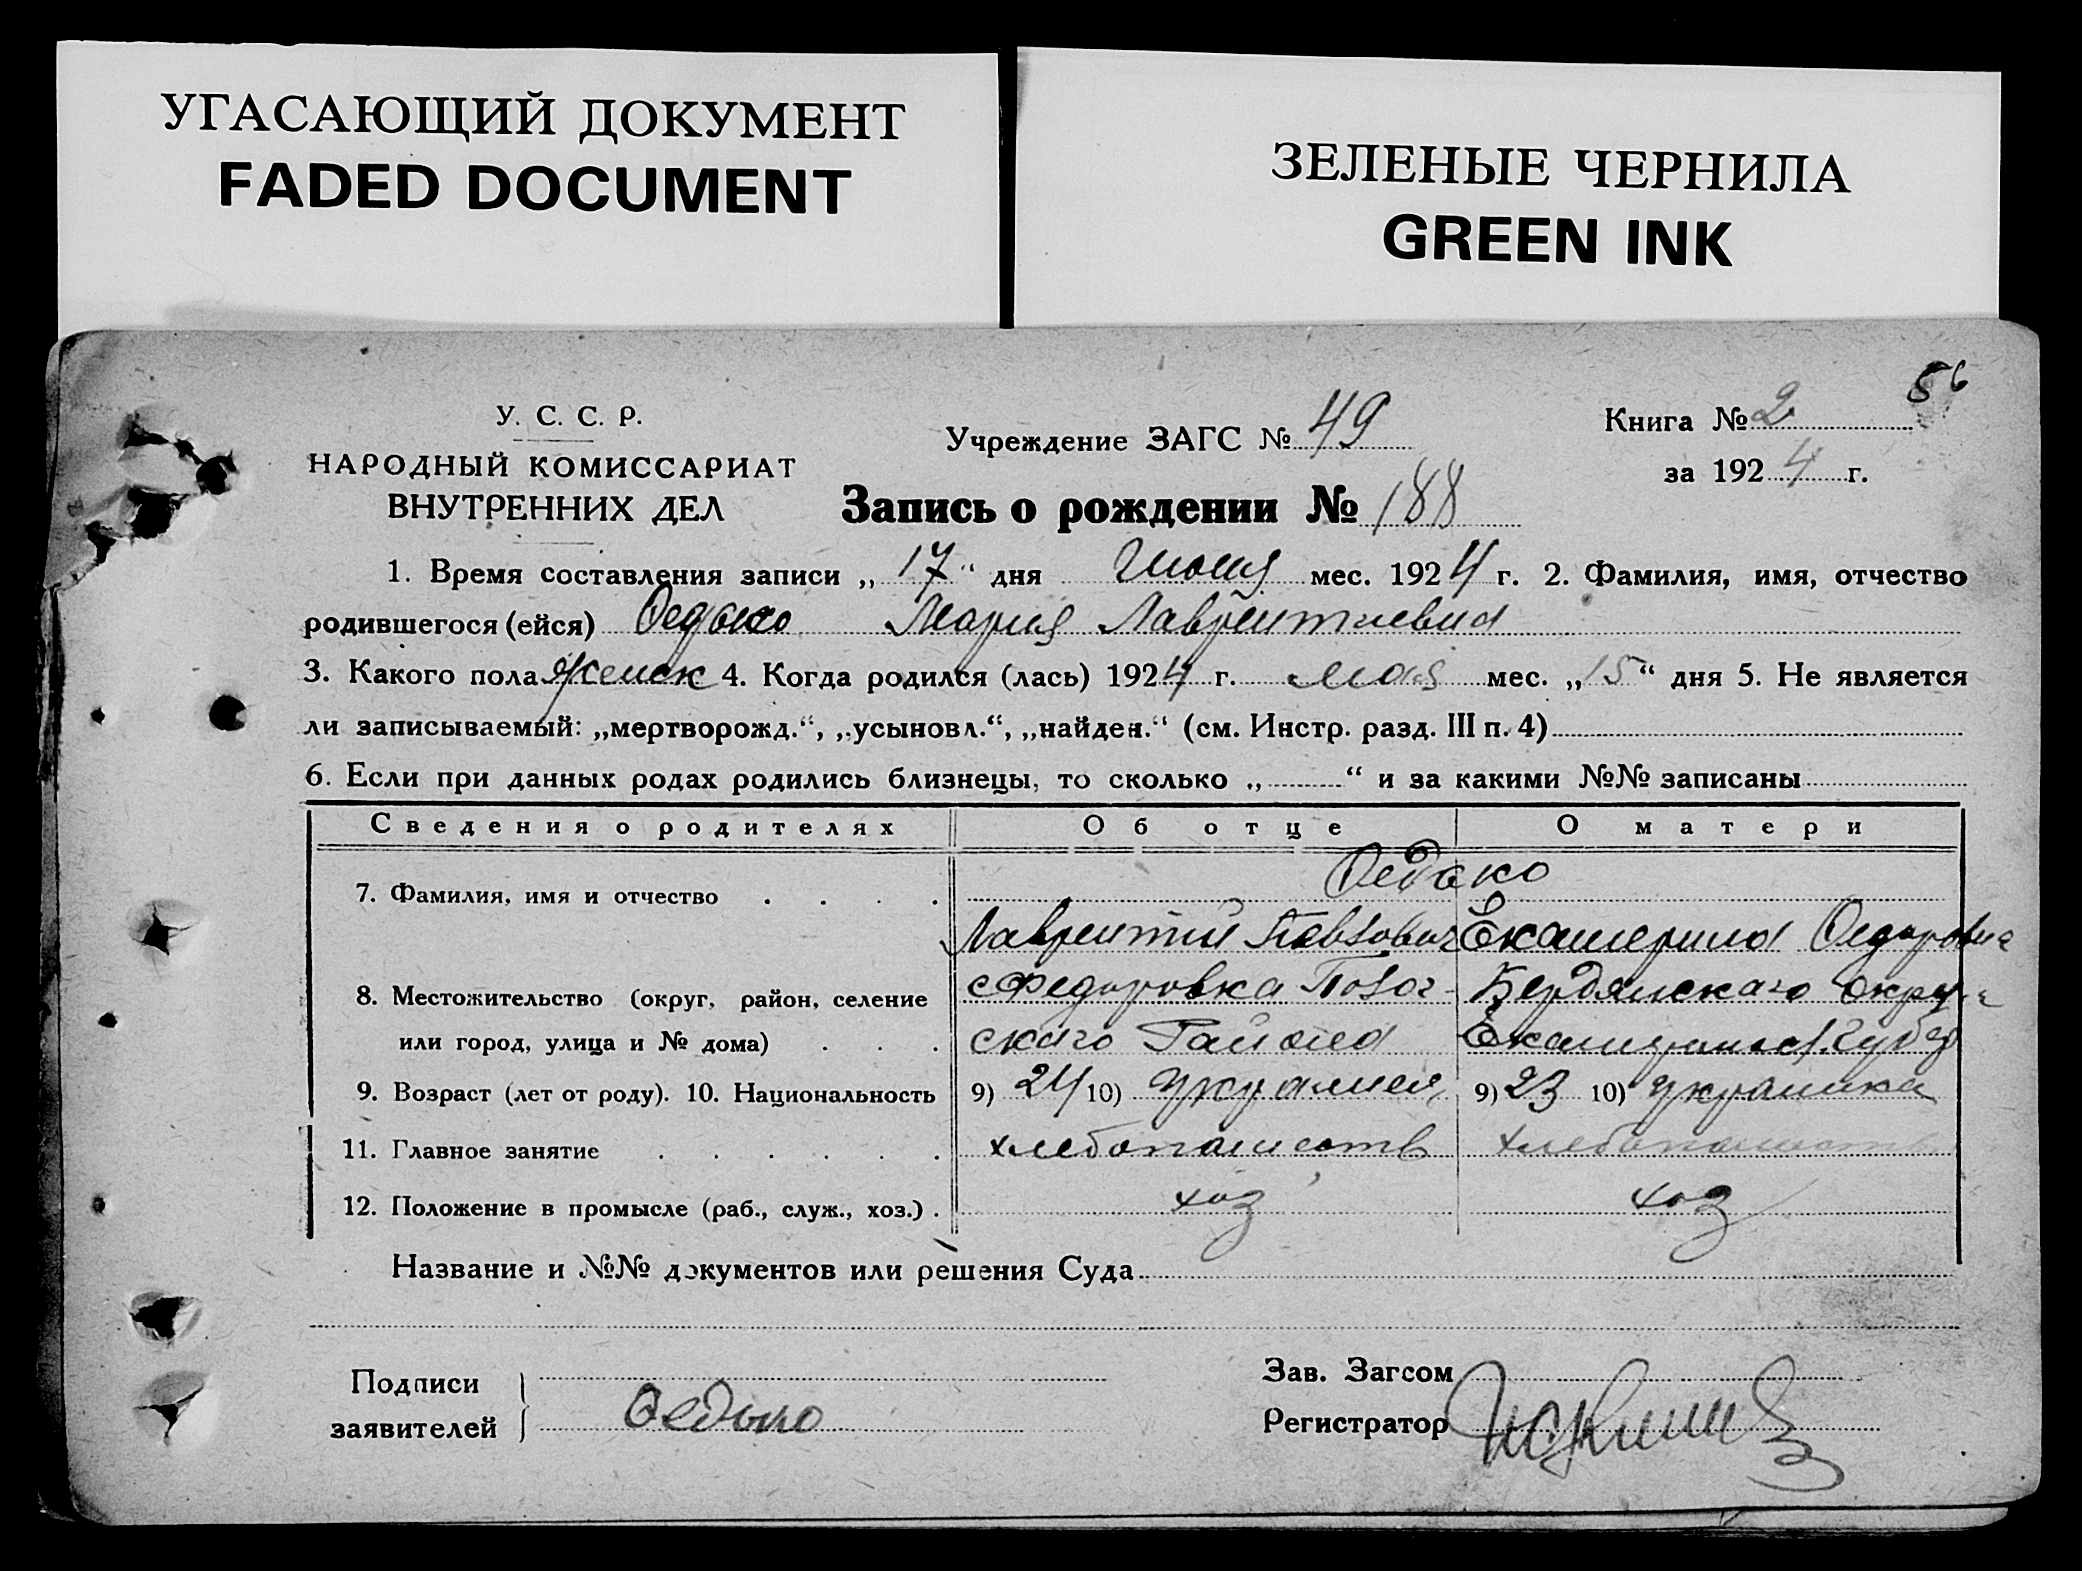 УГАСАЮЩИЙ ДОКУМЕНТ
FADED DOCUMENT
ЗЕЛЕНЫЕ ЧЕРНИЛА
GREEN INK
56
У. С. С. Р.
НАРОДНЫЙ КОМИССАРИАТ
ВНУТРЕННИХ ДЕЛ
Учреждение ЗАГС № 49
Книга № 2
за 1924 г.
Запись о рождении № 188
1. Время составления записи „17“ дня Июня мес. 1924 г. 2. Фамилия, имя, отчество
родившегося (ейся) Мария Лаврентиевна
3. Какого пола женск 4. Когда родился (лась) 1924 г. мая мес. „15“ дня 5. Не является
ли записываемый: „мертворожд.“, „усыновл.“, „найден.“ (см. Инстр. разд. III п. 4)
6. Если при данных родах родились близнецы, то сколько „ “ и за какими №№ записаны
Сведения о родителях Об отце О матери
7. Фамилия, имя и отчество
Лаврентий Екатерина
8. Местожительство (округ, район, селение с Федоровка Бердянскаго округа
или город, улица и № дома) скаго Района
9. Возраст (лет от роду). 10. Национальность 9) 24 10) 9) 23 10) украинка
11. Главное занятие хлебопашеств хлебопашеств
12. Положение в промысле (раб., служ., хоз.) хоз хоз
Название и №№ документов или решения Суда
Подписи
заявителей
Зав. Загсом
Регистратор